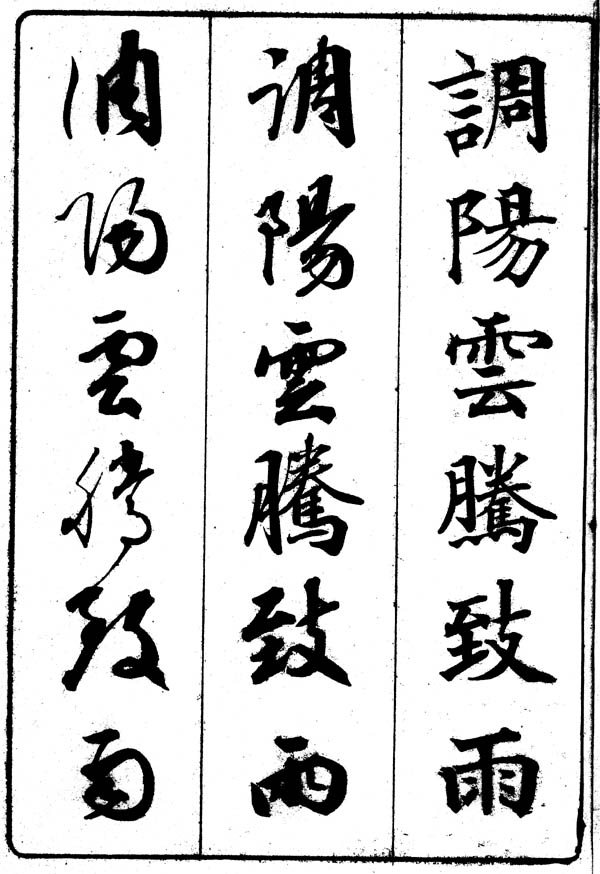 調陽雲騰致雨
調陽雲騰致雨
調陽雲騰致雨